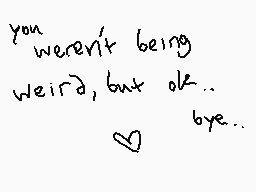 you
weren't being
weird, but ok..
bye..